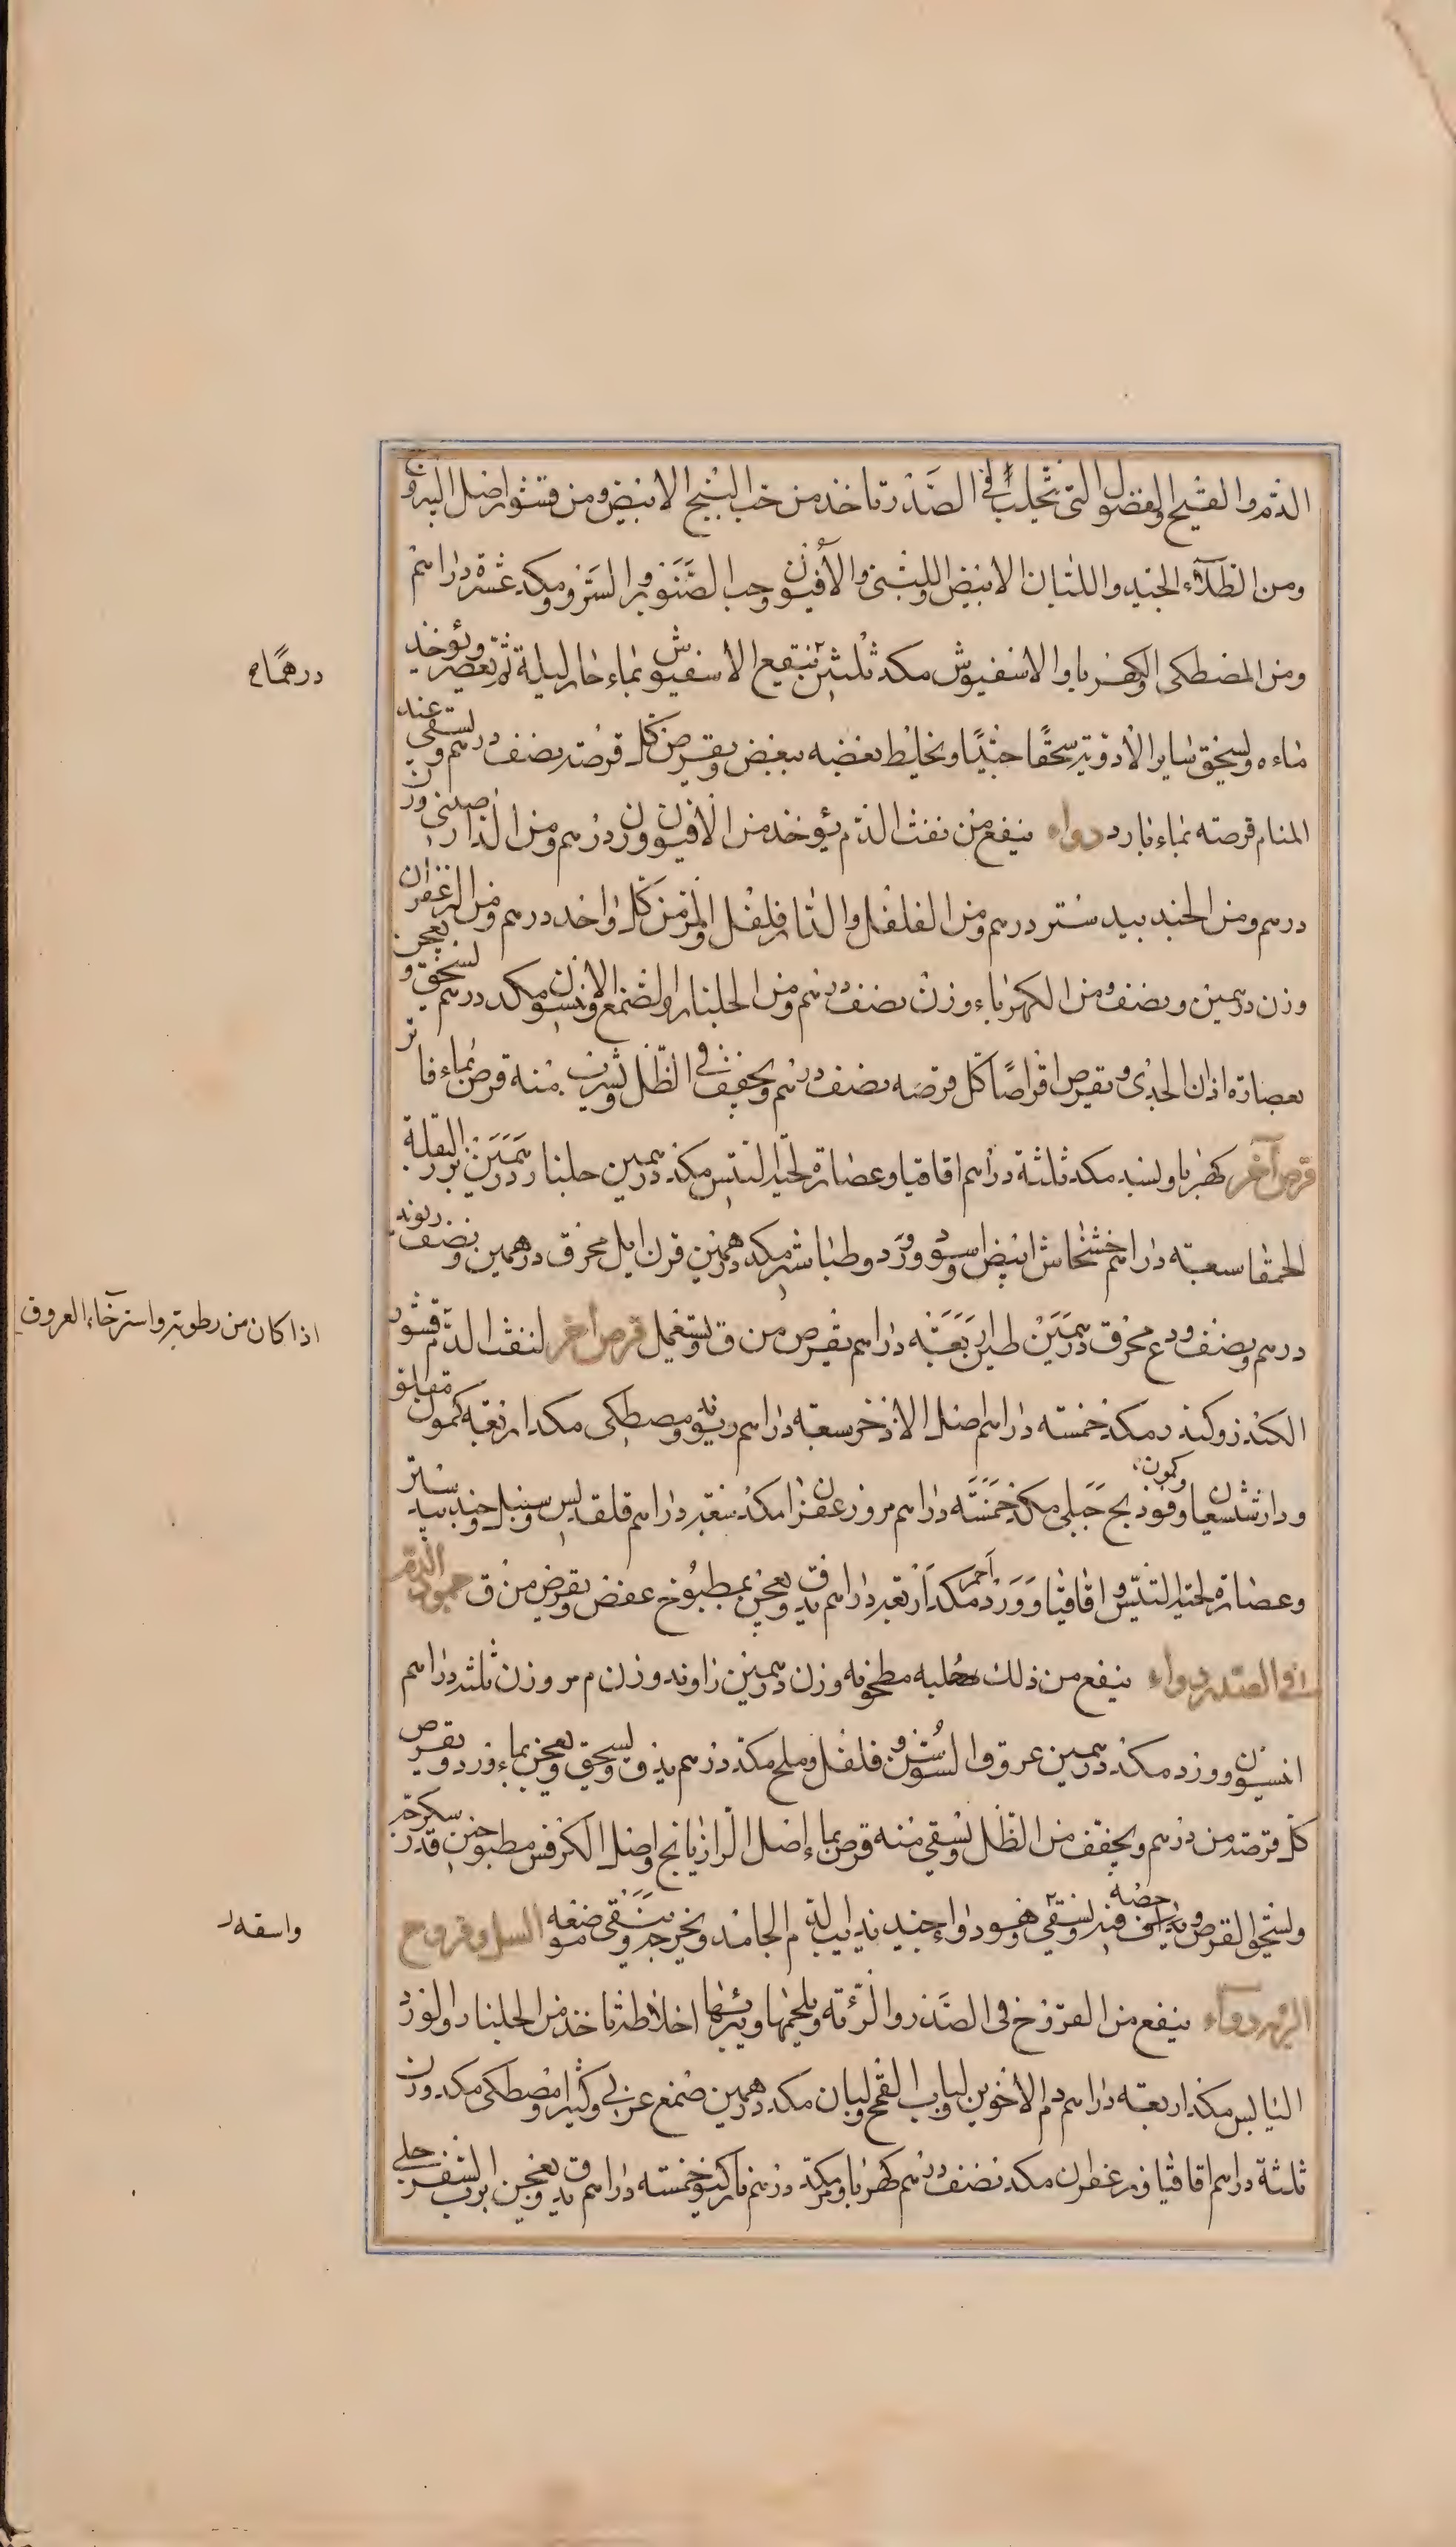 الدم والقيح والفضول التى تجلب الى الصدر تاخذ من حب البنج الابيض ومن قشور اصل اليبروح
ومن الطلآء الجيد واللبان الابيض واللبنى والأفيون وحب الصنوبر والسرو مكد عشرة دراهم
ومن المصطكى والكهربا والاسفيوش مكد ثلثين ينقع الاسفيوش بماء حار ليلة ثم يعصر ويؤخذ
درهما
ماءه ويسحق ساير الأدوية سحقًا جيّدًا ويخلط بعضه ببعض ويقرص كل قرصة نصف درهم ويسقى عند
المنام قرصة بماء بارد دواء ينفع من نفث الدم يؤخذ من الأفيون وزن درهم ومن الدارصينى وزن
درهم ومن الجند بيدستر درهم ومن الفلفل والدار فلفل والمر من كل واحد درهم ومن الزعفران
وزن درهمين ونصف ومن الكهرباء وزن نصف درهم ومن الجلنار والصمغ والانيسون مكد درهم يسحق ويعجن
بعصارة اذان الجدى ويقرص اقراصًا كل قرصه نصف درهم ويجفف فى الظل ويشرب منه قرص بماء فاتر
قرص آخر كهربا وبسد مكد ثلثة دراهم اقاقيا وعصارة لحية التيس مكد درهمين جلنار درهمين بزر البقلة
الحمقا سبعة دراهم خشخاش ابيض واسود وورد وطباشير مكد درهمين قرن ايل محرق درهمين ونصف ريوند
درهم ونصف ودع محرق درهمين طين اربعة دراهم يقرص من ق ويستعمل قرص آخر لنفث الدم قشور
اذا كان من رطوبة واسترخاء العروق
الكندر وكندر مكد خمسة دراهم اصل الاذخر سبعة دراهم ريوند ومصطكى مكد اربعة كمون مقلو
ودارشيشعان وفوذنج جبلى مكد خمسة دراهم مر وزعفران مكد سبعة دراهم قلقديس وسنبل وجند بيدستر
وكمون
وعصارة لحية التيس واقاقيا وورد احمر مكد اربعة دراهم يدق ويعجن بمطبوخ عفص ويقرص من ق جمود الدم
فى الصدر دواء ينفع من ذلك حلبه مطحونه وزن درهمين زاوند وزن م مر وزن ثلثة دراهم
انيسون وورد مكد درهمين عروق السوسن وفلفل وملح مكد درهم يدق ويسحق ويعجن بماء ورد ويقرص
كل قرصة من درهم ويجفف من الظل ويسقى منه قرص بماء اصل الرازيانج واصل الكرفس مطبوخين قدر سكرجة
ويسحق القرص ويداف فيه ويسقى وهو دواء جيد يذيب الدم الجامد ويخرجه وينقى موضعه السل وقروح
واسقه
الرئة دواء ينفع من القروح فى الصدر والرئة ويلحمها ويبرئها اخلاطه تاخذ من الجلنار والورد
اليابس مكد اربعة دراهم دم الاخوين ولباب القمح ولبان مكد درهمين صمغ عربى وكثيرا ومصطكى مكد وزن
ثلثة دراهم اقاقيا وزعفران مكد نصف درهم كهربا ومر مكد درهم ناركيو خمسة دراهم يدق ويعجن برب السفرجل